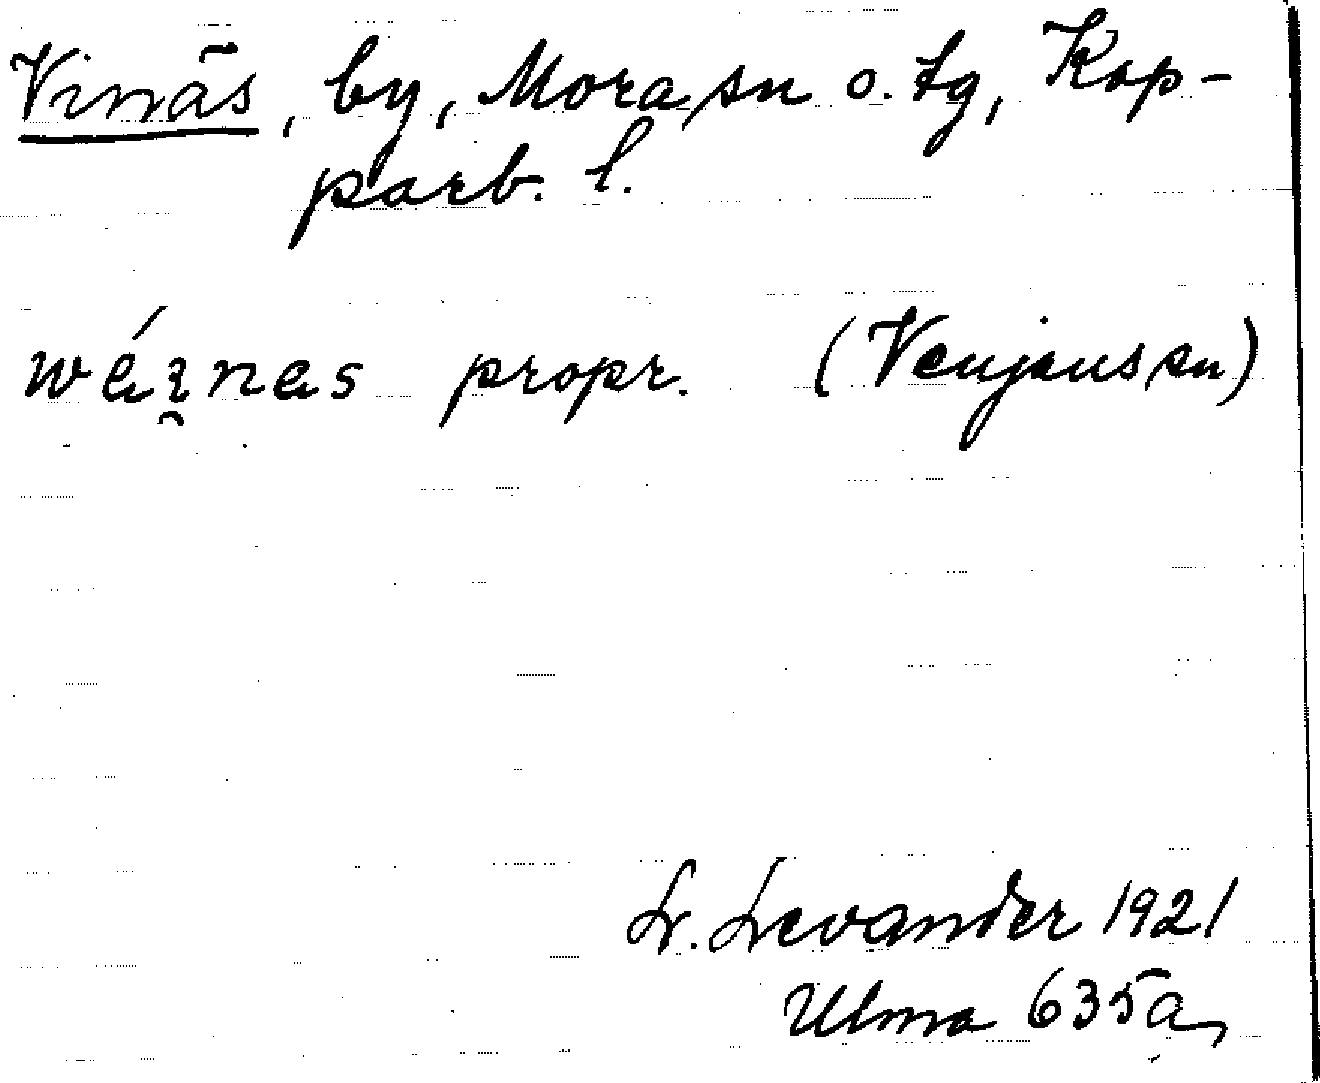 Vinäs, by, Mora sn o. tg, Kop-
parb. l.
wé̜ı̯nas propr. (Venjans sn)
L. Levander 1921
Ulma 635a,